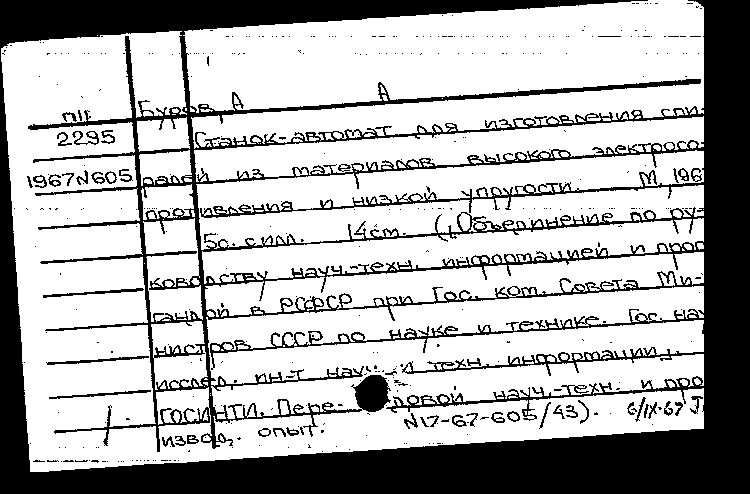 ПII Буров, А А
2295 Станок-автомат для изготовления спи-
1967N605 ралей из материалов высокого электросо-
противления и низкой упругости. М, 196
5с. с илл. 14см. („Объединение по ру-
ководству науч.-техн. информацией и проп
гандой в РСФСР при Гос. ком. Совета Ми-
нистров СССР по науке и технике. Гос. нау
исслед. ин-т науч. и техн. информации„.
ГОСИНТИ. Пере- довой науч.-техн. и про
извод. опыт. N17-67-605/43). 6/IX-67